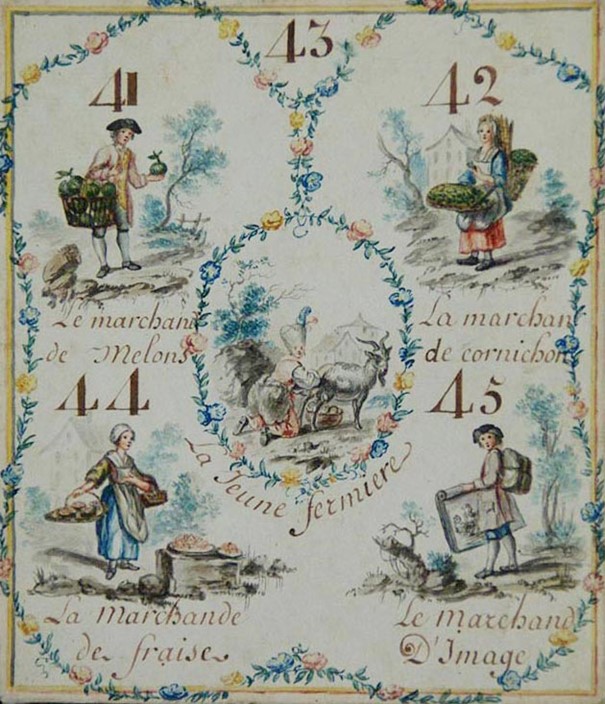 43
41
42
Le marchand
de Melons
La marchan
de cornichon
44
45
La Jeune fermiere
La Marchande
de fraises
Le Marchand
D'Image